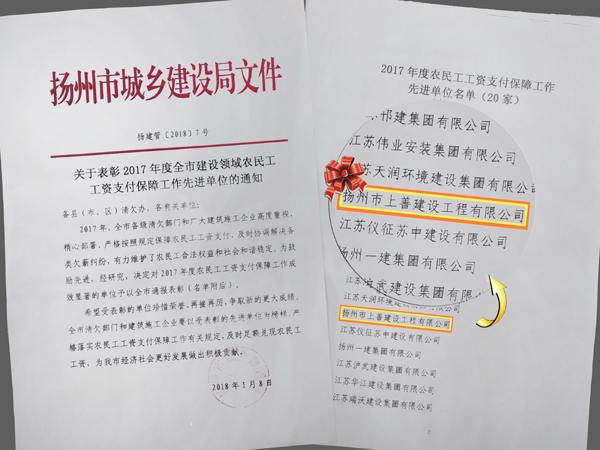 扬州市城乡建设局文件
扬建管〔2018〕7号
关于表彰2017年度全市建设领域农民工
工资支付保障工作先进单位的通知
各县（市、区）清欠办，各有关单位：
2017年，全市各级清欠部门和广大建筑施工企业高度重视，
精心部署，严格按照规定保障农民工工资支付，及时协调解决各
类欠薪纠纷，有力维护了农民工合法权益和社会和谐稳定。为鼓
励先进，经研究，决定对2017年度农民工工资支付保障工作成
效显著的单位予以全市通报表彰（名单附后）。
希望受表彰的单位珍惜荣誉，再接再厉，争取新的更大成绩。
全市清欠部门和建筑施工企业要以受表彰的先进单位为榜样，严
格落实农民工工资支付保障工作有关规定，及时足额兑现农民工
工资，为我市经济社会更好发展做出积极贡献。
2018年1月8日
2017年度农民工工资支付保障工作
先进单位名单（20家）
邗建集团有限公司
江苏伟业安装集团有限公司
苏天润环境建设集团有限公司
扬州市上善建设工程有限公司
江苏仪征苏中建设有限公司
扬州一建集团有限公司
江苏沪武建设集团有限
江苏天润环境建设集团有限公司
扬州市上善建设工程有限公司
江苏仪征苏中建设有限公司
扬州一建集团有限公司
江苏沪武建设集团有限公司
江苏华江建设集团有限公司
江苏瑞沃建设集团有限公司